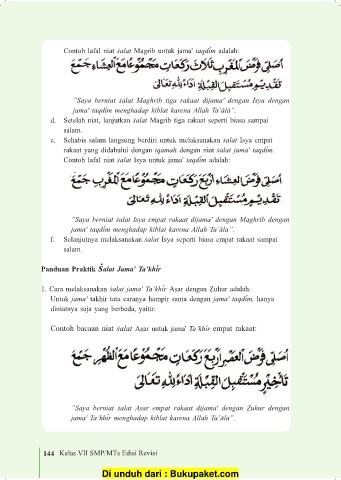 Contoh lafal niat śalat Magrib untuk jama' taqdīm adalah:
أُصَلِّى فَرْضَ الْمَغْرِبِ ثَلَاثَ رَكَعَاتٍ مَجْمُوْعًا مَعَ الْعِشَاءِ جَمْعَ
تَقْدِيْمٍ مُسْتَقْبِلَ الْقِبْلَةِ اَدَاءً لِلّٰهِ تَعَالَى
"Saya berniat śalat Maghrib tiga rakaat dijama' dengan Isya dengan
jama' taqdīm menghadap kiblat karena Allah Ta'āla".
d. Setelah niat, lanjutkan śalat Magrib tiga rakaat seperti biasa sampai
salam.
e. Sehabis salam langsung berdiri untuk melaksanakan śalat Isya empat
rakaat yang didahului dengan iqamah dengan niat śalat jama' taqdīm.
Contoh lafal niat śalat Isya untuk jama' taqdīm adalah:
أُصَلِّى فَرْضَ الْعِشَاءِ أَرْبَعَ رَكَعَاتٍ مَجْمُوْعًا مَعَ الْمَغْرِبِ جَمْعَ
تَقْدِيْمٍ مُسْتَقْبِلَ الْقِبْلَةِ اَدَاءً لِلّٰهِ تَعَالَى
"Saya berniat śalat Isya empat rakaat dijama' dengan Maghrib dengan
jama' taqdīm menghadap kiblat karena Allah Ta'āla".
f. Selanjutnya melaksanakan śalat Isya seperti biasa empat rakaat sampai
salam.
Panduan Praktik Śalat Jama' Ta'khīr
1. Cara melaksanakan śalat jama' Ta'khīr Aşar dengan Zuhur adalah:
Untuk jama' takhir tata caranya hampir sama dengan jama' taqdīm, hanya
diniatnya saja yang berbeda, yaitu:
Contoh bacaan niat śalat Aşar untuk jama' Ta'khīr empat rakaat:
أُصَلِّى فَرْضَ الْعَصْرِ اَرْبَعَ رَكَعَاتٍ مَجْمُوْعًا مَعَ الظُّهْرِ جَمْعَ
تَأْخِيْرٍ مُسْتَقْبِلَ الْقِبْلَةِ اَدَاءً لِلّٰهِ تَعَالَى
"Saya berniat śalat Aşar empat rakaat dijama' dengan Zuhur dengan
jama' Ta'khīr menghadap kiblat karena Allah Ta'āla".
144 Kelas VII SMP/MTs Edisi Revisi
Di unduh dari : Bukupaket.com